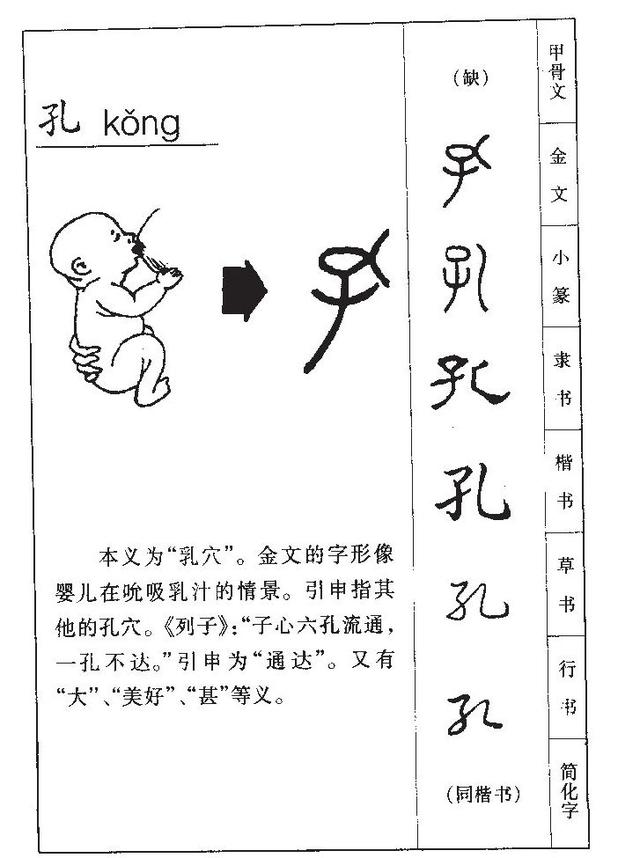 孔 kǒng
本义为“乳穴”。金文的字形像
婴儿在吮吸乳汁的情景。引申指其
他的孔穴。《列子》：“子心六孔流通，
一孔不达。”引申为“通达”。又有
“大”、“美好”、“甚”等义。
（缺）
甲骨文
孔
金文
孔
小篆
孔
隶书
孔
楷书
孔
草书
孔
行书
（同楷书）
简化字